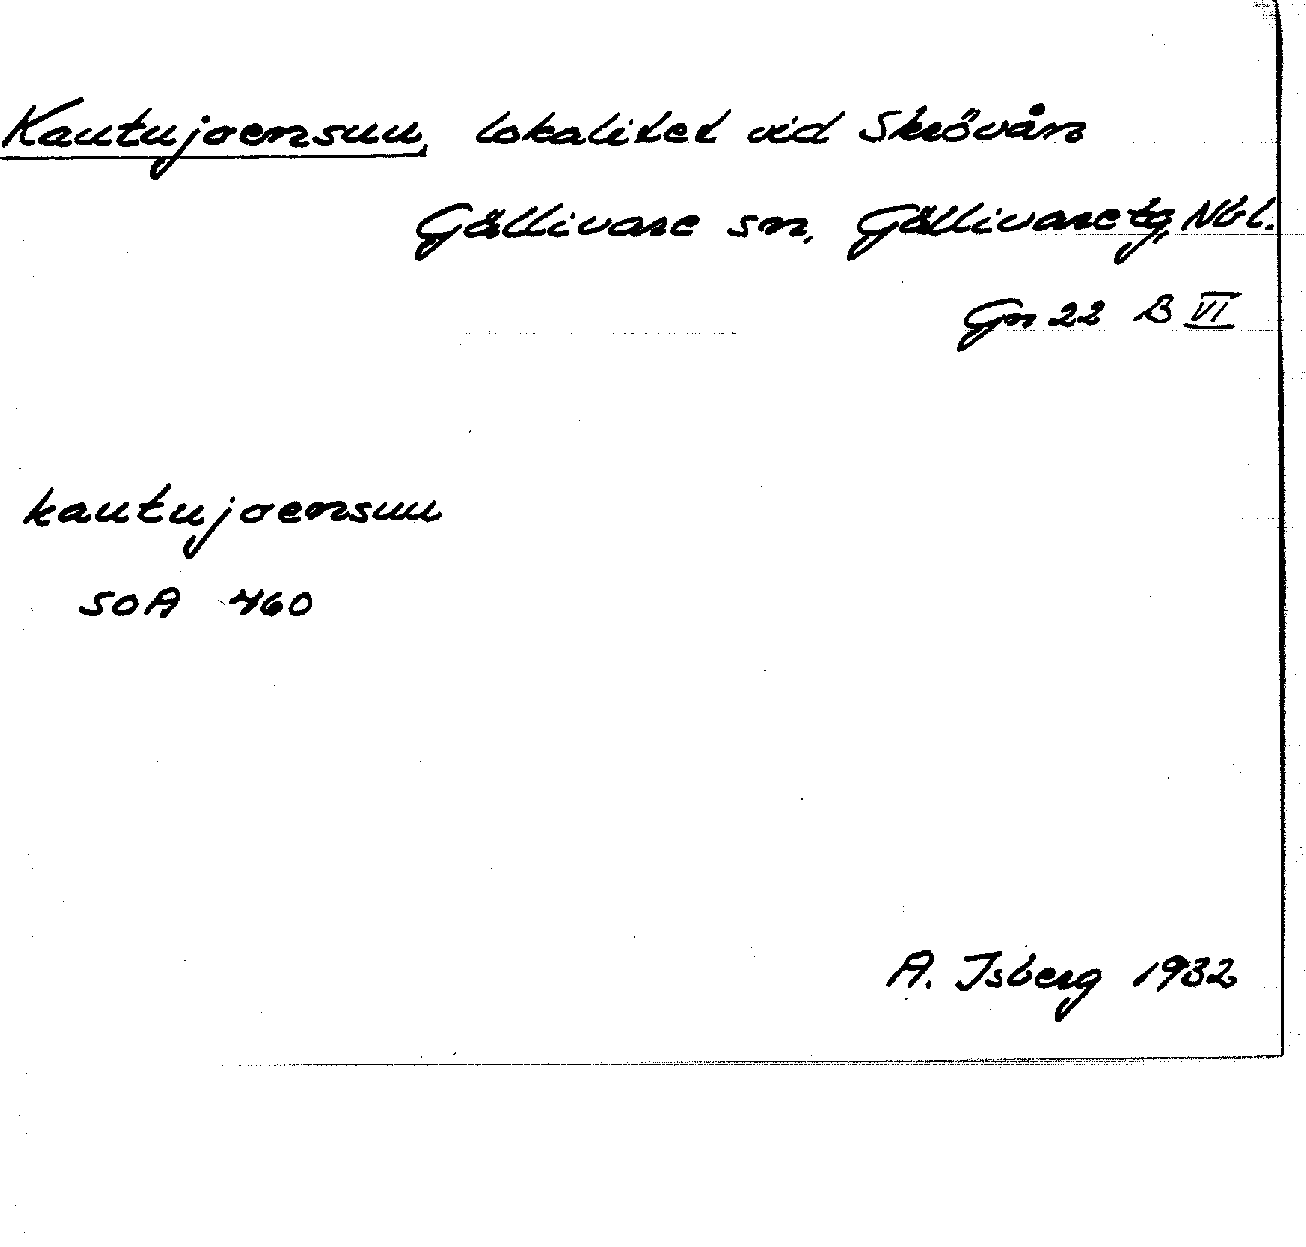 Kautujoensuu, lokalitet vid Skrövån
Gällivare sn, Gällivare tg, Nbl.
Gn 22 B VI
kautujoensuu
SOA 460
A. Isberg 1932